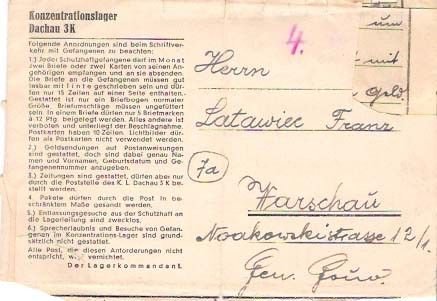 Konzentrationslager
Dachau 3 K
Folgende Anordnungen sind beim Schriftver-
kehr mit Gefangenen zu beachten:
1.) Jeder Schutzhaftgefangene darf im Monat
zwei Briefe oder zwei Karten von seinen An-
gehörigen empfangen und an sie absenden.
Die Briefe an die Gefangenen müssen gut
lesbar mit Tinte geschrieben sein und dür-
fen nur 15 Zeilen auf einer Seite enthalten.
Gestattet ist nur ein Briefbogen normaler
Größe. Briefumschläge müssen ungefüttert
sein. In einem Briefe dürfen nur 5 Briefmarken
à 12 Pfg. beigelegt werden. Alles andere ist
verboten und unterliegt der Beschlagnahme.
Postkarten haben 10 Zeilen. Lichtbilder dür-
fen als Postkarten nicht verwendet werden.
2.) Geldsendungen auf Postanweisungen
sind gestattet, doch sind dabei genau Na-
men und Vornamen, Geburtsdatum und Ge-
fangenennummer anzugeben.
3.) Zeitungen sind gestattet, dürfen aber nur
durch die Poststelle des K. L. Dachau 3 K be-
stellt werden.
4. Pakete dürfen durch die Post in be-
schränktem Maße gesandt werden.
5.) Entlassungsgesuche aus der Schutzhaft an
die Lagerleitung sind zwecklos.
6.) Sprecherlaubnis und Besuche von Gefan-
genen im Konzentrations-Lager sind grund-
sätzlich nicht gestattet.
Alle Post, die diesen Anforderungen nicht
entspricht, w. vernichtet.
Der Lagerkommandant.
4.
um
mit
Geld.
Herrn
Latawiec Franz
7a
Warschau
Noakowskistrasse 12/1.
Gen. Gouv.